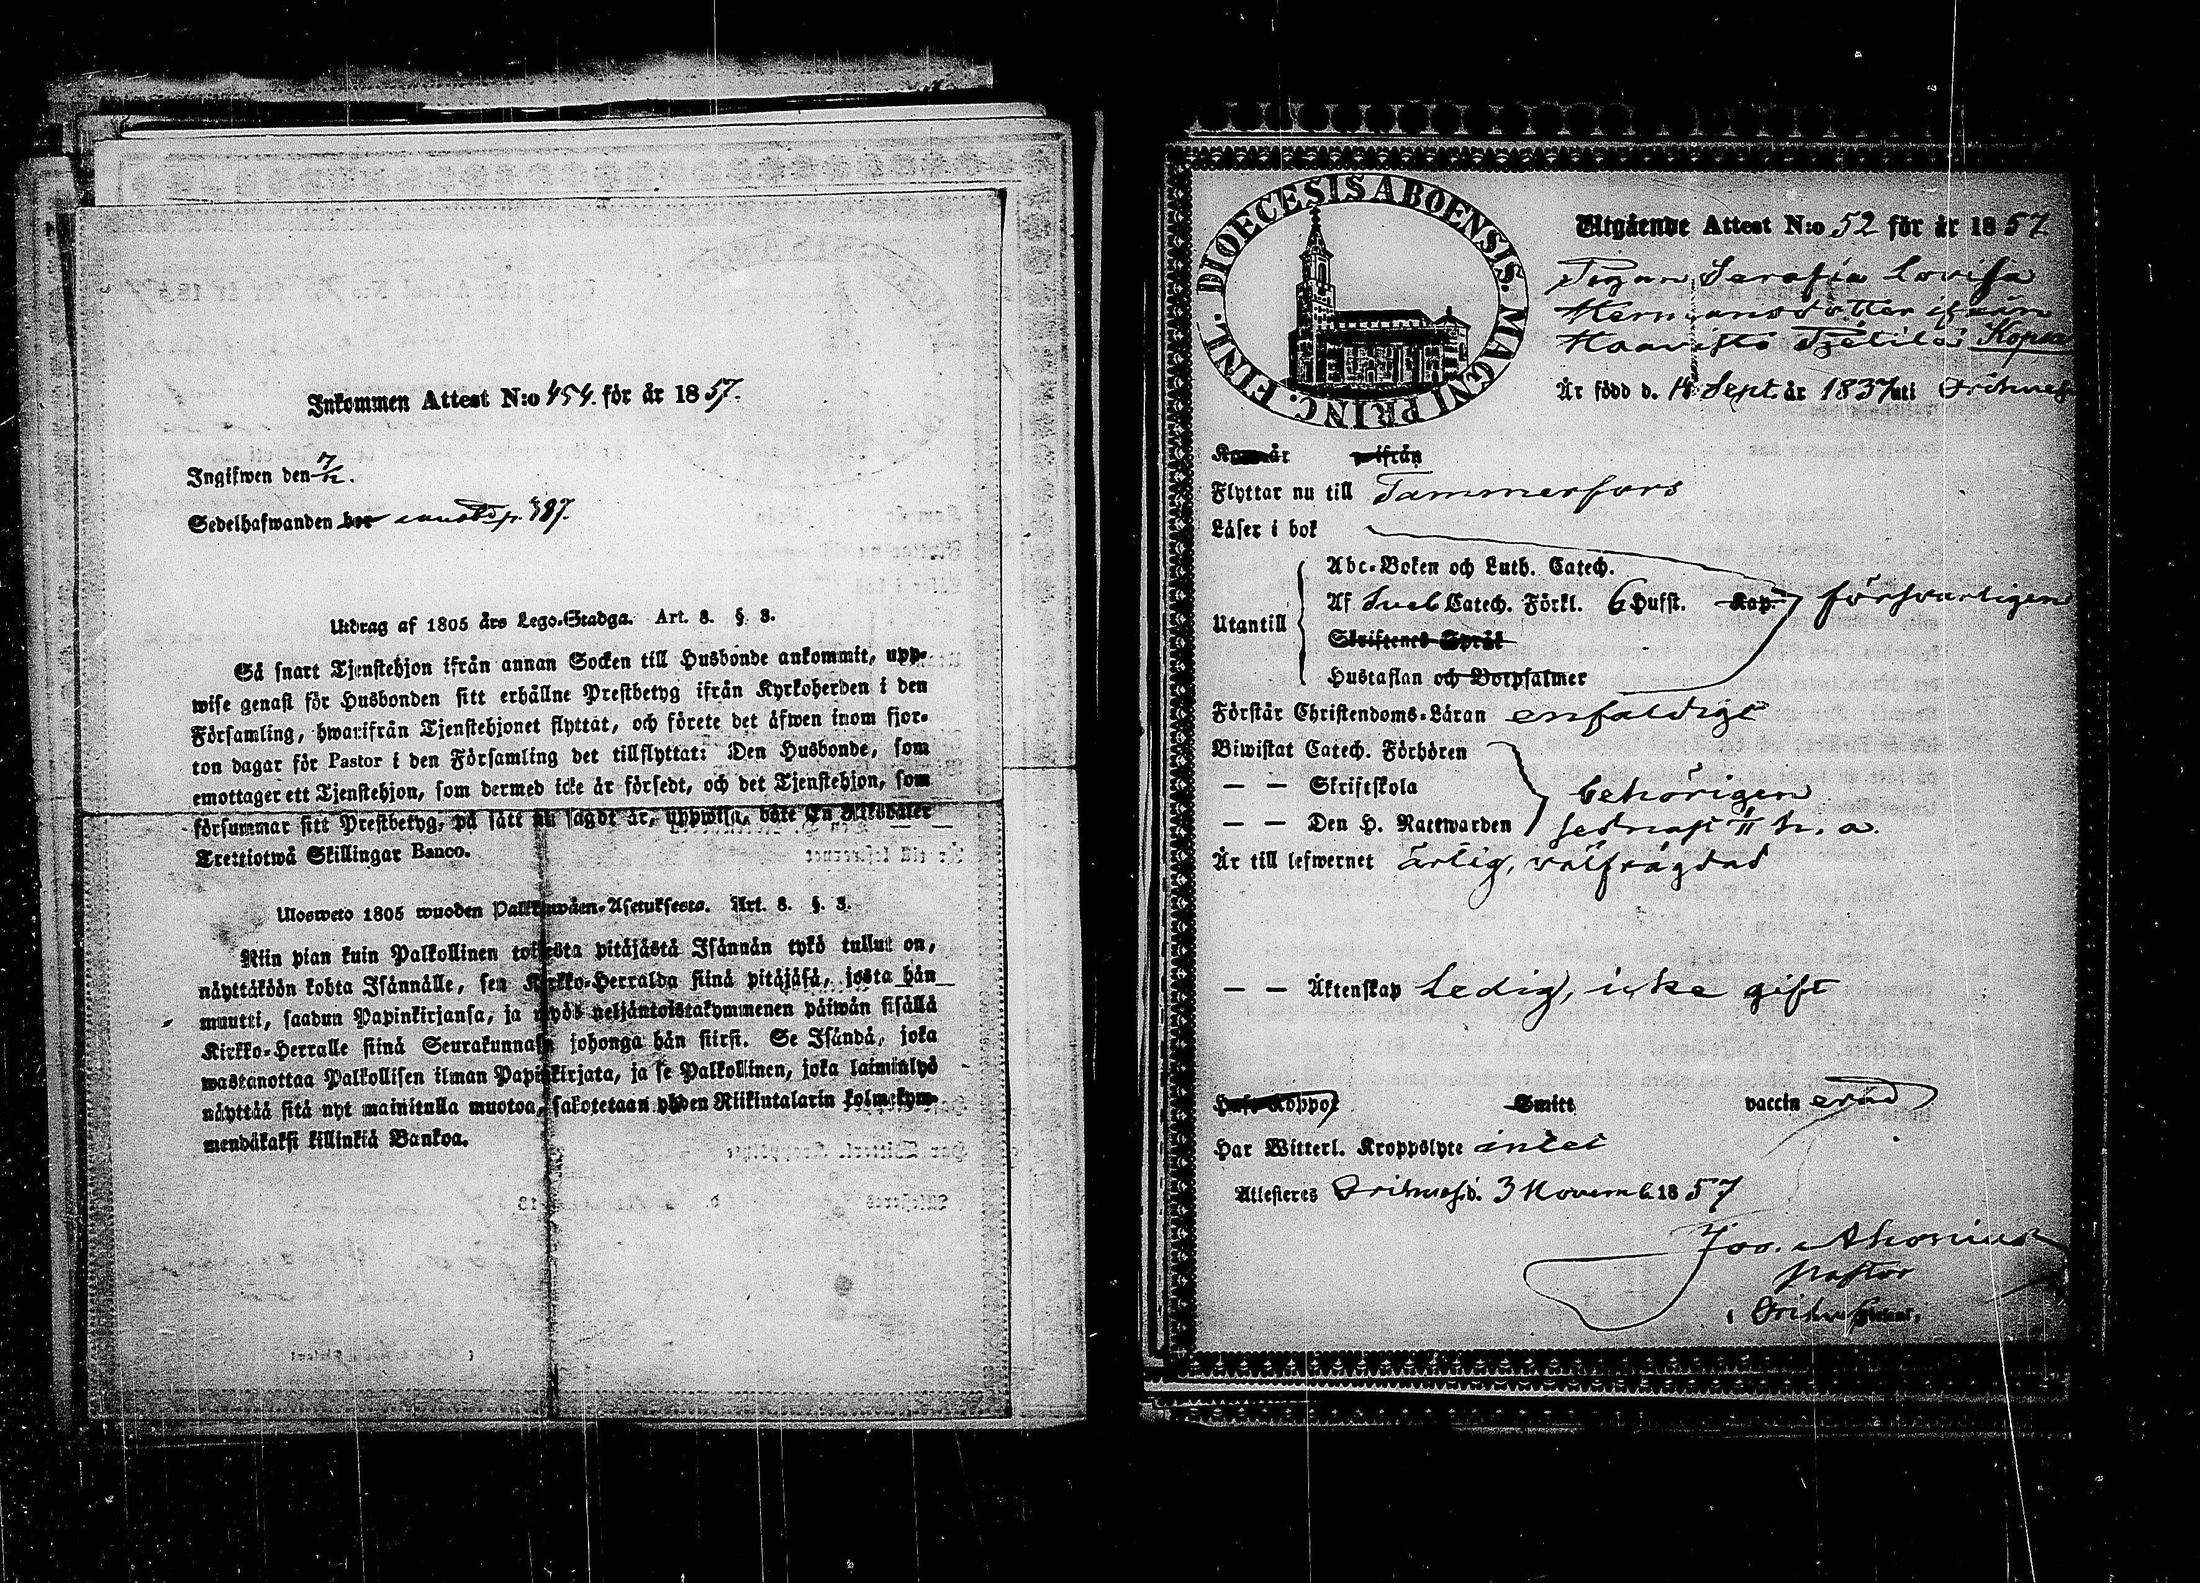 Inkommen Attest N:o 454. för år 1857.
Ingifwen den 7/12.
Sedelhafwanden bor p. 387.
Utdrag af 1805 års Lego-Stadga. Art. 8. § 3.
Så snart Tjenstehjon ifrån annan Socken till Husbonde ankommit, upp-
wise genast för Husbonden sitt erhållne Prestbetyg ifrån Kyrkoherden i den
Församling, hwarifrån Tjenstehjonet flyttat, och förete det äfwen inom fjor-
ton dagar för Pastor i den Församling det tillflyttat: Den Husbonde, som
emottager ett Tjenstehjon, som dermed icke är försedt, och det Tjenstehjon, som
försummar sitt Prestbetyg, på sätt nu sagdt är, uppwisa, böte En Riksdaler
Trettiotwå Skillingar Banco.
Ulosweto 1805 wuoden Palkkawäen-Asetuksesta. Art. 8. §. 3.
Niin pian kuin Palkollinen toisesta pitäjästä Isännän tykö tullut on,
näyttäköön kohta Isännälle, sen Kirkko-Herralda siinä pitäjäsä, josta hän
muutti, saadun Papinkirjansa, ja myös neljäntoistakymmenen päiwän sisällä
Kirkko-Herralle siinä Seurakunnasa johonga hän siirsi. Se Isändä, joka
wastanottaa Palkollisen ilman Papinkirjata, ja se Palkollinen, joka laiminlyö
näyttää sitä nyt mainitulla muotoa, sakotetaan yhden Riikintalarin kolmekym-
mendäkaksi killinkiä Bankoa.
DIOECESIS ABOENSIS. MAGNI PRINC. FINL.
Utgående Attest N:o 52 för år 1857.
Pigan Serafia Lovisa
Hermansdotter ifrån
Haavisto Pätilä Kopsa
Är född d. 14 Sept. år 1837 uti Orihvesi
Kom år ifrån
Flyttar nu till Tammerfors
Läser i bok
Abc-Boken och Luth. Catech.
Utantill Af Sveb Catech. Förkl. 6 Hufst. Kap. försvarligen
Skriftenes Språk
Hustaflan och Botpsalmer
Förstår Christendoms-Läran enfaldigt
Biwistat Catech. Förhören
— — Skriftskola behörigen
— — Den H. Nattwarden sednast h. a.
Är till lefwernet ärlig, välfrägdad
— — Äktenskap Ledig, icke gift
Haft Koppor Smitt vaccin erad
Har Witterl. Kroppslyte intet
Attesteras Orihvesi d. 3 Novemb. 1857
Joo.
Pastor
i Orihvesi